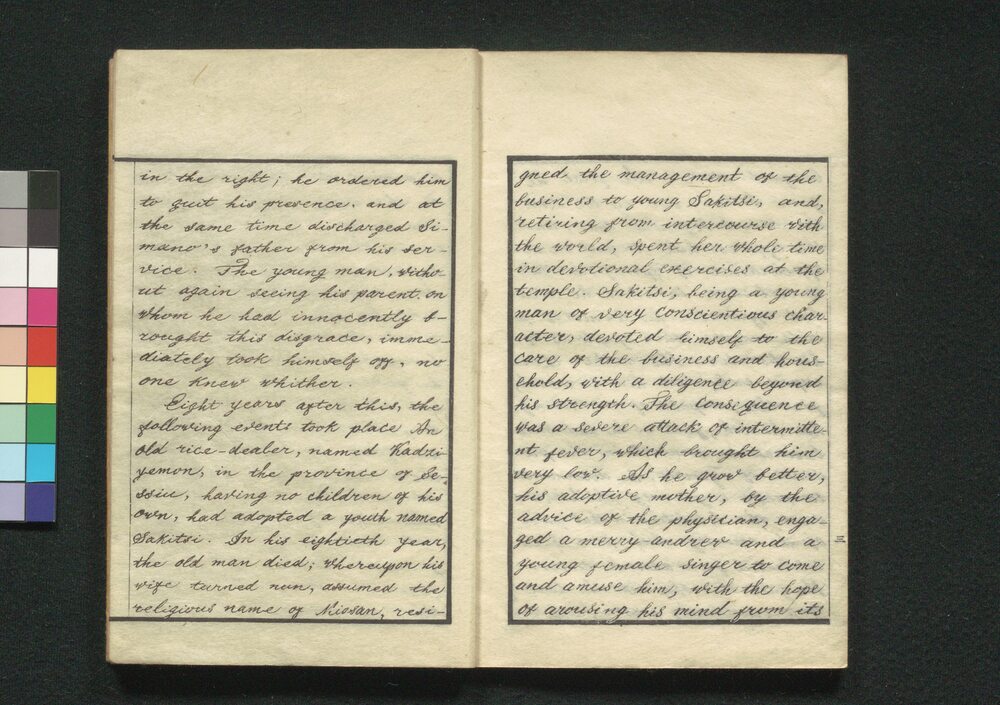 in the right; he ordered him
to quit his presence. and at
the same time discharged Si-
mano's father from his ser-
vice. The young man, witho-
ut again seeing his parent. on
whom he had innocently b-
rought this disgrace, imme-
diately took himself off, no
one knew whither.
Eight years after this, the
following events took place An
old rice-dealer, named Kadzi
yemon, in the province of Se-
ssiu, having no children of his
own, had adopted a youth named
Sakitsi. In his eightieth year,
the old man died; whereupon his
wife turned nun, assumed the
religious name of Niosan, resi-
gned the management of the
business to young Sakitsi, and,
retiring from intercourse with
the world, spent her whole time
in devotional exercises at the
temple. Sakitsi, being a young
man of very conscientious char-
acter, devoted himself to the
care of the business and hous-
ehold, with a diligence beyond
his strength. The consequence
was a severe attack of intermitte-
nt fever, which brought him
very low. As he grow better,
his adoptive mother, by the
advice of the physician, enga-
ged a merry-andrew and a
young female singer to come
and amuse him, with the hope
of arousing his mind from its
三